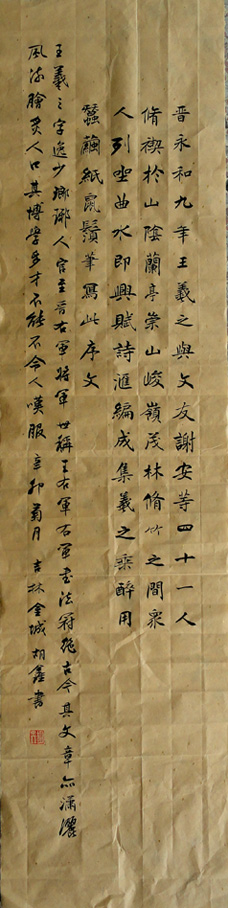 晋永和九年王羲之與文友謝安等四十一人
脩禊於山陰蘭亭崇山峻嶺茂林脩竹之間衆
人列坐曲水即興賦詩滙編成集羲之乘醉用
蠶繭紙鼠鬚筆寫此序文
王羲之字逸少瑯琊人官至晋右軍將軍世稱王右軍右軍書法冠絶古今其文章亦瀟灑
風流膾炙人口其博學多才不能不令人嘆服 辛卯菊月 吉林金城 胡鑫書